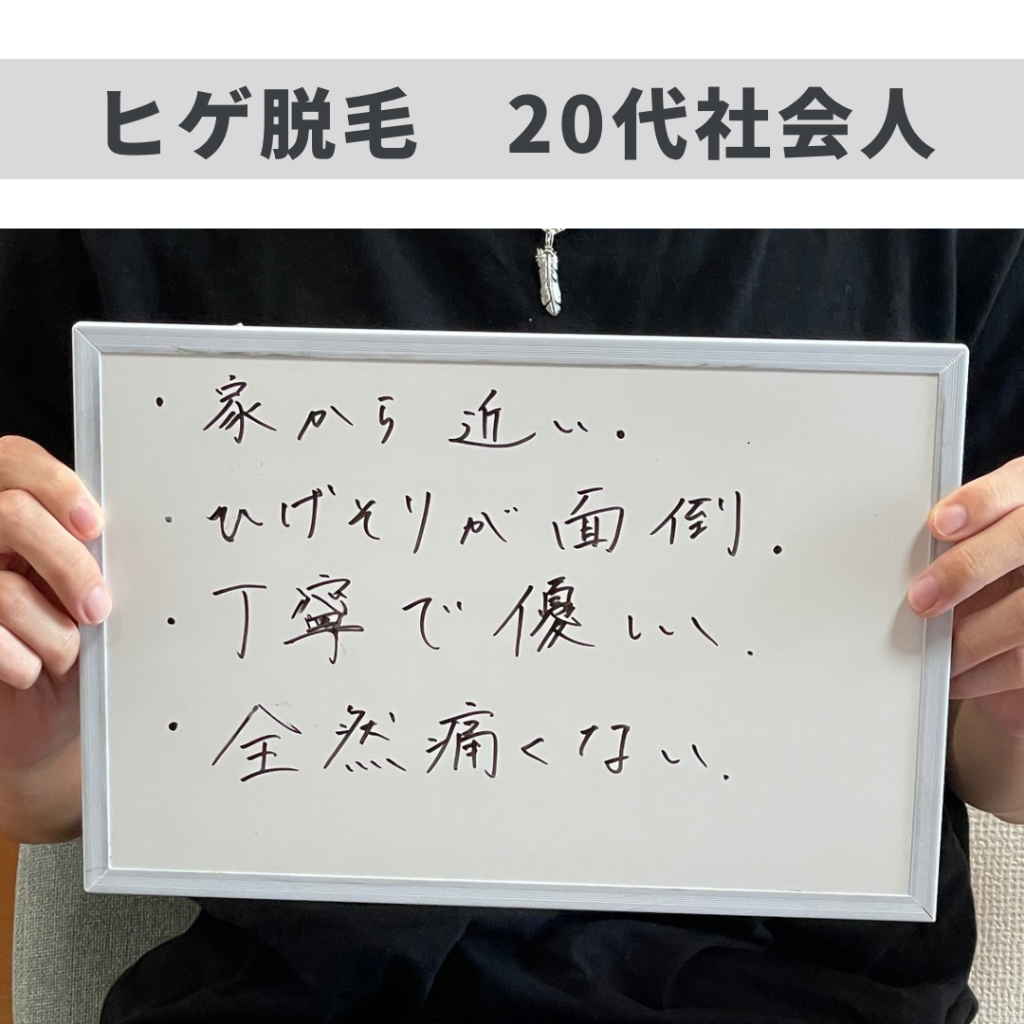 ヒゲ脱毛　20代社会人
・家から近い.
・ひげそりが面倒.
・丁寧で優しい.
・全然痛くない.